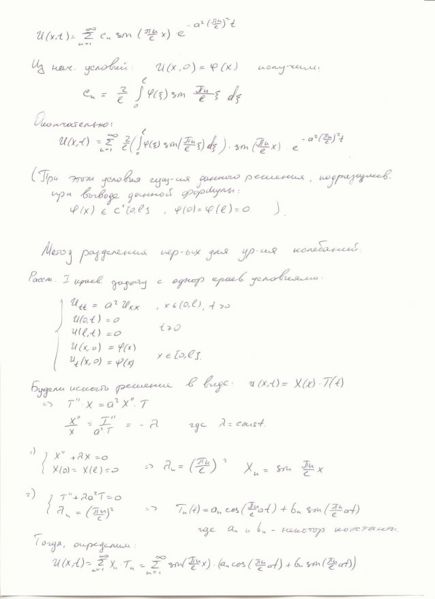 U(x,t) = ∞ Σ n=1 cₙ sin (πn/ℓ x) e^(-a²(πn/ℓ)²t)
Из нач. условий: U(x,0) = φ(x) получим:
cₙ = 2/ℓ ∫₀^ℓ φ(ξ) sin πn/ℓ ξ dξ
Окончательно:
U(x,t) = ∞ Σ n=1 2/ℓ (∫₀^ℓ φ(ξ) sin(πn/ℓ ξ) dξ) · sin(πn/ℓ x) e^(-a²(πn/ℓ)²t)
(При этом условия сущ-ия данного решения, подразумев.
при выводе данной формулы:
φ(x) ∈ C'[0,ℓ], φ(0)=φ(ℓ)=0 ).
Метод разделения пер-ых для ур-ия колебаний.
Рассм. I краев. задачу с однор. краев. условиями.
Utt = a² Uxx, x∈(0,ℓ), t>0
U(0,t) = 0
U(ℓ,t) = 0 t>0
U(x,0) = φ(x)
Ut(x,0) = ψ(x) x∈[0,ℓ].
Будем искать решение в виде: U(x,t) = X(x)·T(t)
⇒ T''·X = a² X''·T
X''/X = T''/a²T = -λ где λ = const.
1) { X''+λX=0
X(0)=X(ℓ)=0 ⇒ λₙ = (πn/ℓ)² Xₙ = sin πn/ℓ x
2) { T''+λa²T=0
λₙ=(πn/ℓ)² ⇒ Tₙ(t) = aₙ cos(πn/ℓ at) + bₙ sin(πn/ℓ at)
где aₙ и bₙ - некотор. констант.
Тогда, определим:
U(x,t) = ∞ Σ n=1 Xₙ Tₙ = ∞ Σ n=1 sin(πn/ℓ x)·(aₙ cos(πn/ℓ at) + bₙ sin(πn/ℓ at))